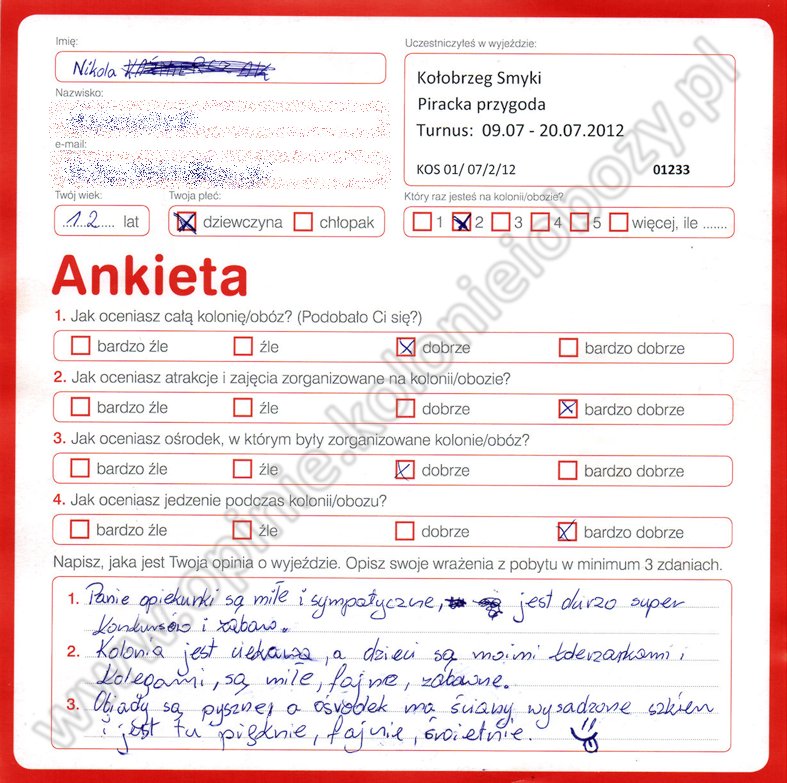 Imię:
Uczestniczyłeś w wyjeździe:
Nikola
Kołobrzeg Smyki
Piracka przygoda
Turnus: 09.07 - 20.07.2012
KOS 01/ 07/2/12 01233
Nazwisko:
e-mail:
Twój wiek: Twoja płeć: Który raz jesteś na kolonii/obozie?
12 lat dziewczyna chłopak 1 2 3 4 5 więcej, ile .......
Ankieta
1. Jak oceniasz całą kolonię/obóz? (Podobało Ci się?)
bardzo źle źle dobrze bardzo dobrze
2. Jak oceniasz atrakcje i zajęcia zorganizowane na kolonii/obozie?
bardzo źle źle dobrze bardzo dobrze
3. Jak oceniasz ośrodek, w którym były zorganizowane kolonie/obóz?
bardzo źle źle dobrze bardzo dobrze
4. Jak oceniasz jedzenie podczas kolonii/obozu?
bardzo źle źle dobrze bardzo dobrze
Napisz, jaka jest Twoja opinia o wyjeździe. Opisz swoje wrażenia z pobytu w minimum 3 zdaniach.
1. Panie opiekunki są miłe i sympatyczne, jest durzo super
konkursów i zabaw.
2. Kolonia jest ciekawa, a dzieci są moimi koleżankami i
kolegami, są miłe, fajne, zabawne.
3. Obiady są pyszne, a ośrodek ma ściany wysadzone szkłem
i jest tu pięknie, fajnie, świetnie.
www.opinie.kolonieiobozy.pl